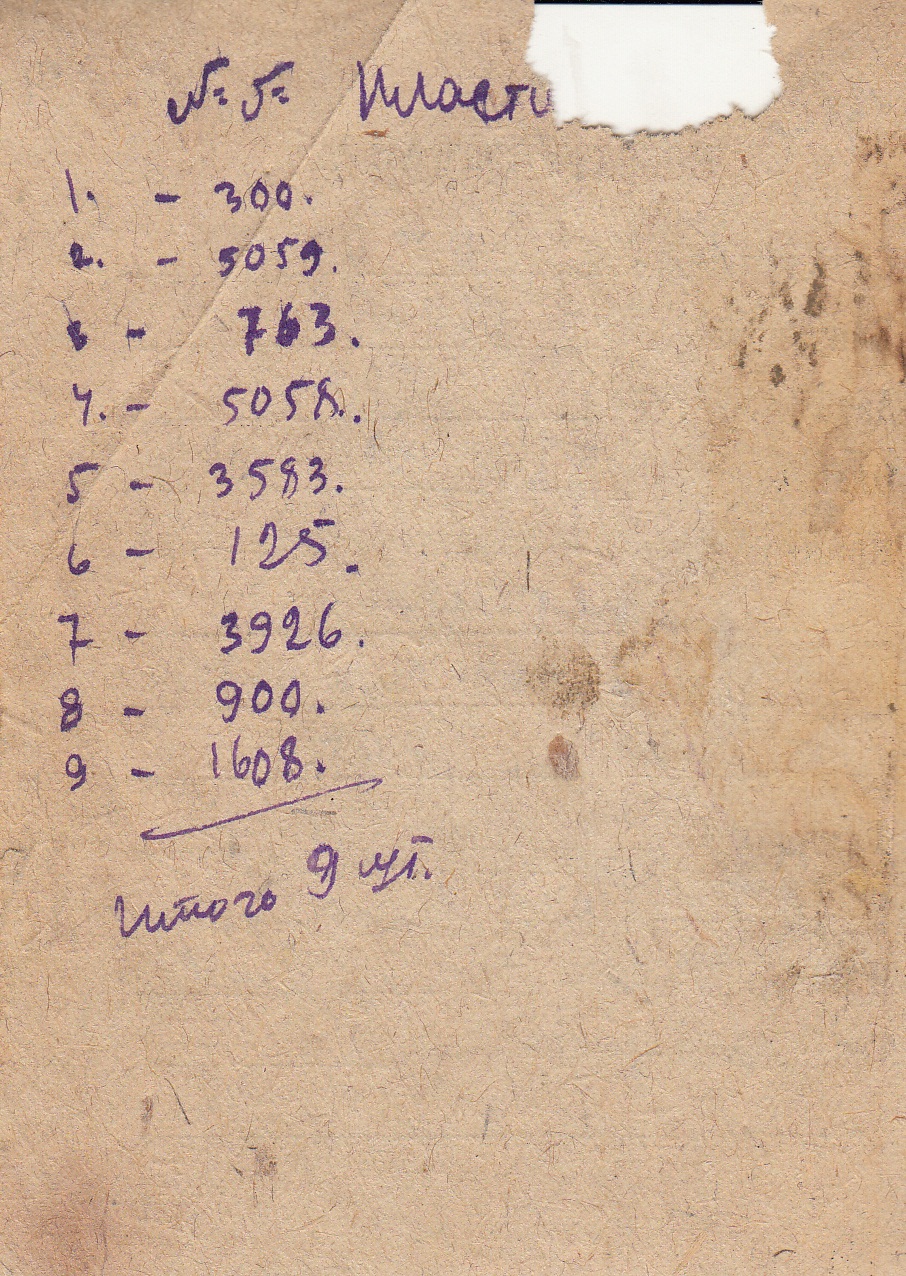 № № Пласти
1. - 300.
2. - 5059.
3 - 763.
4. - 5058.
5 - 3583.
6 - 125.
7 - 3926.
8 - 900.
9 - 1608.
Итого 9 шт.